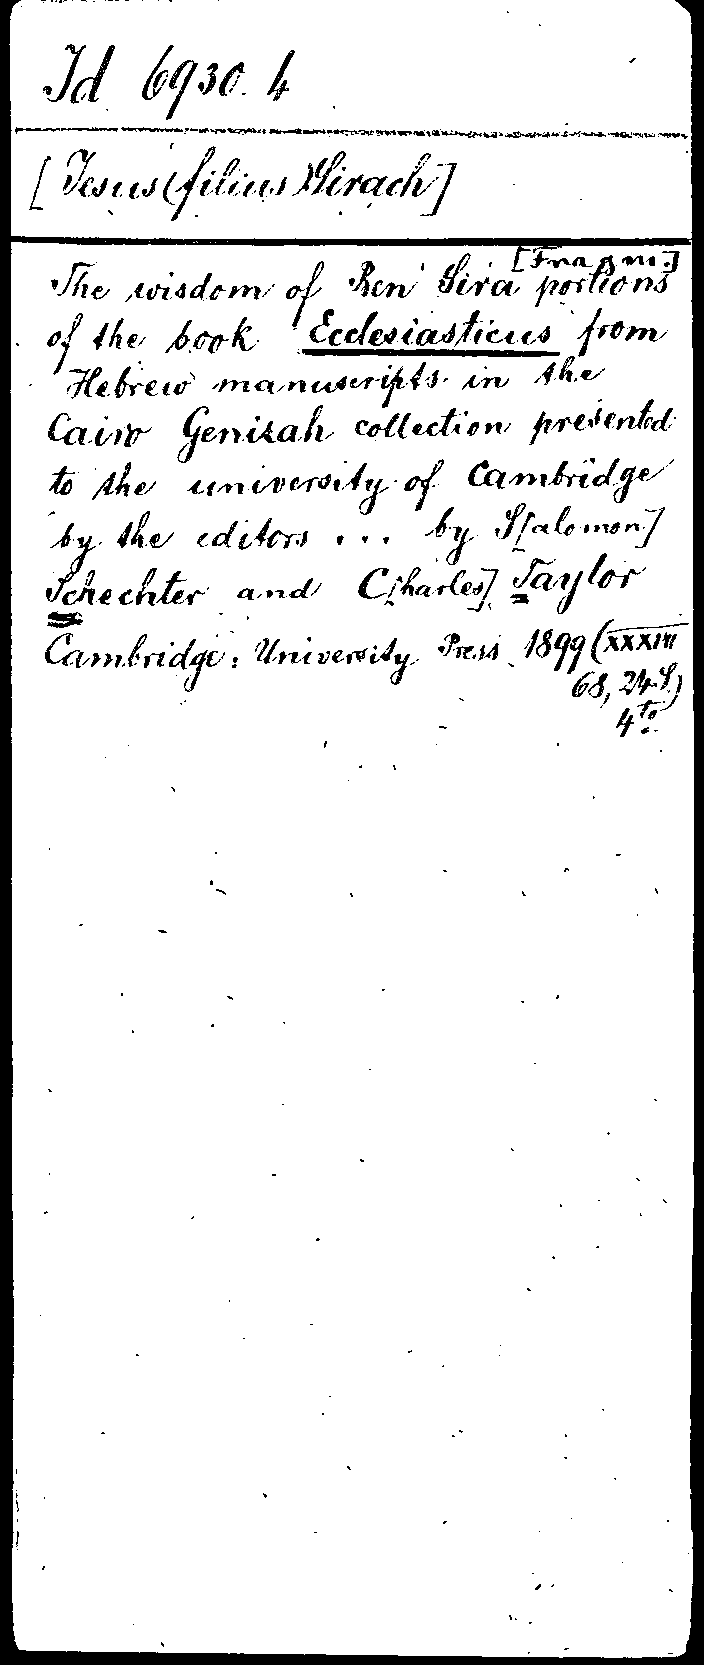 Id 6930.4
[Jesus (filius) Sirach]
[Fragm.]
The wisdom of Ben Sira portions
of the book Ecclesiasticus from
Hebrew manuscripts in the
Cairo Genizah collection presented
to the university of Cambridge
by the editors ... by S[alomon]
Schechter and C[harles] Taylor
Cambridge: University Press 1899 (XXXVIII
68, 24 S.)
4to